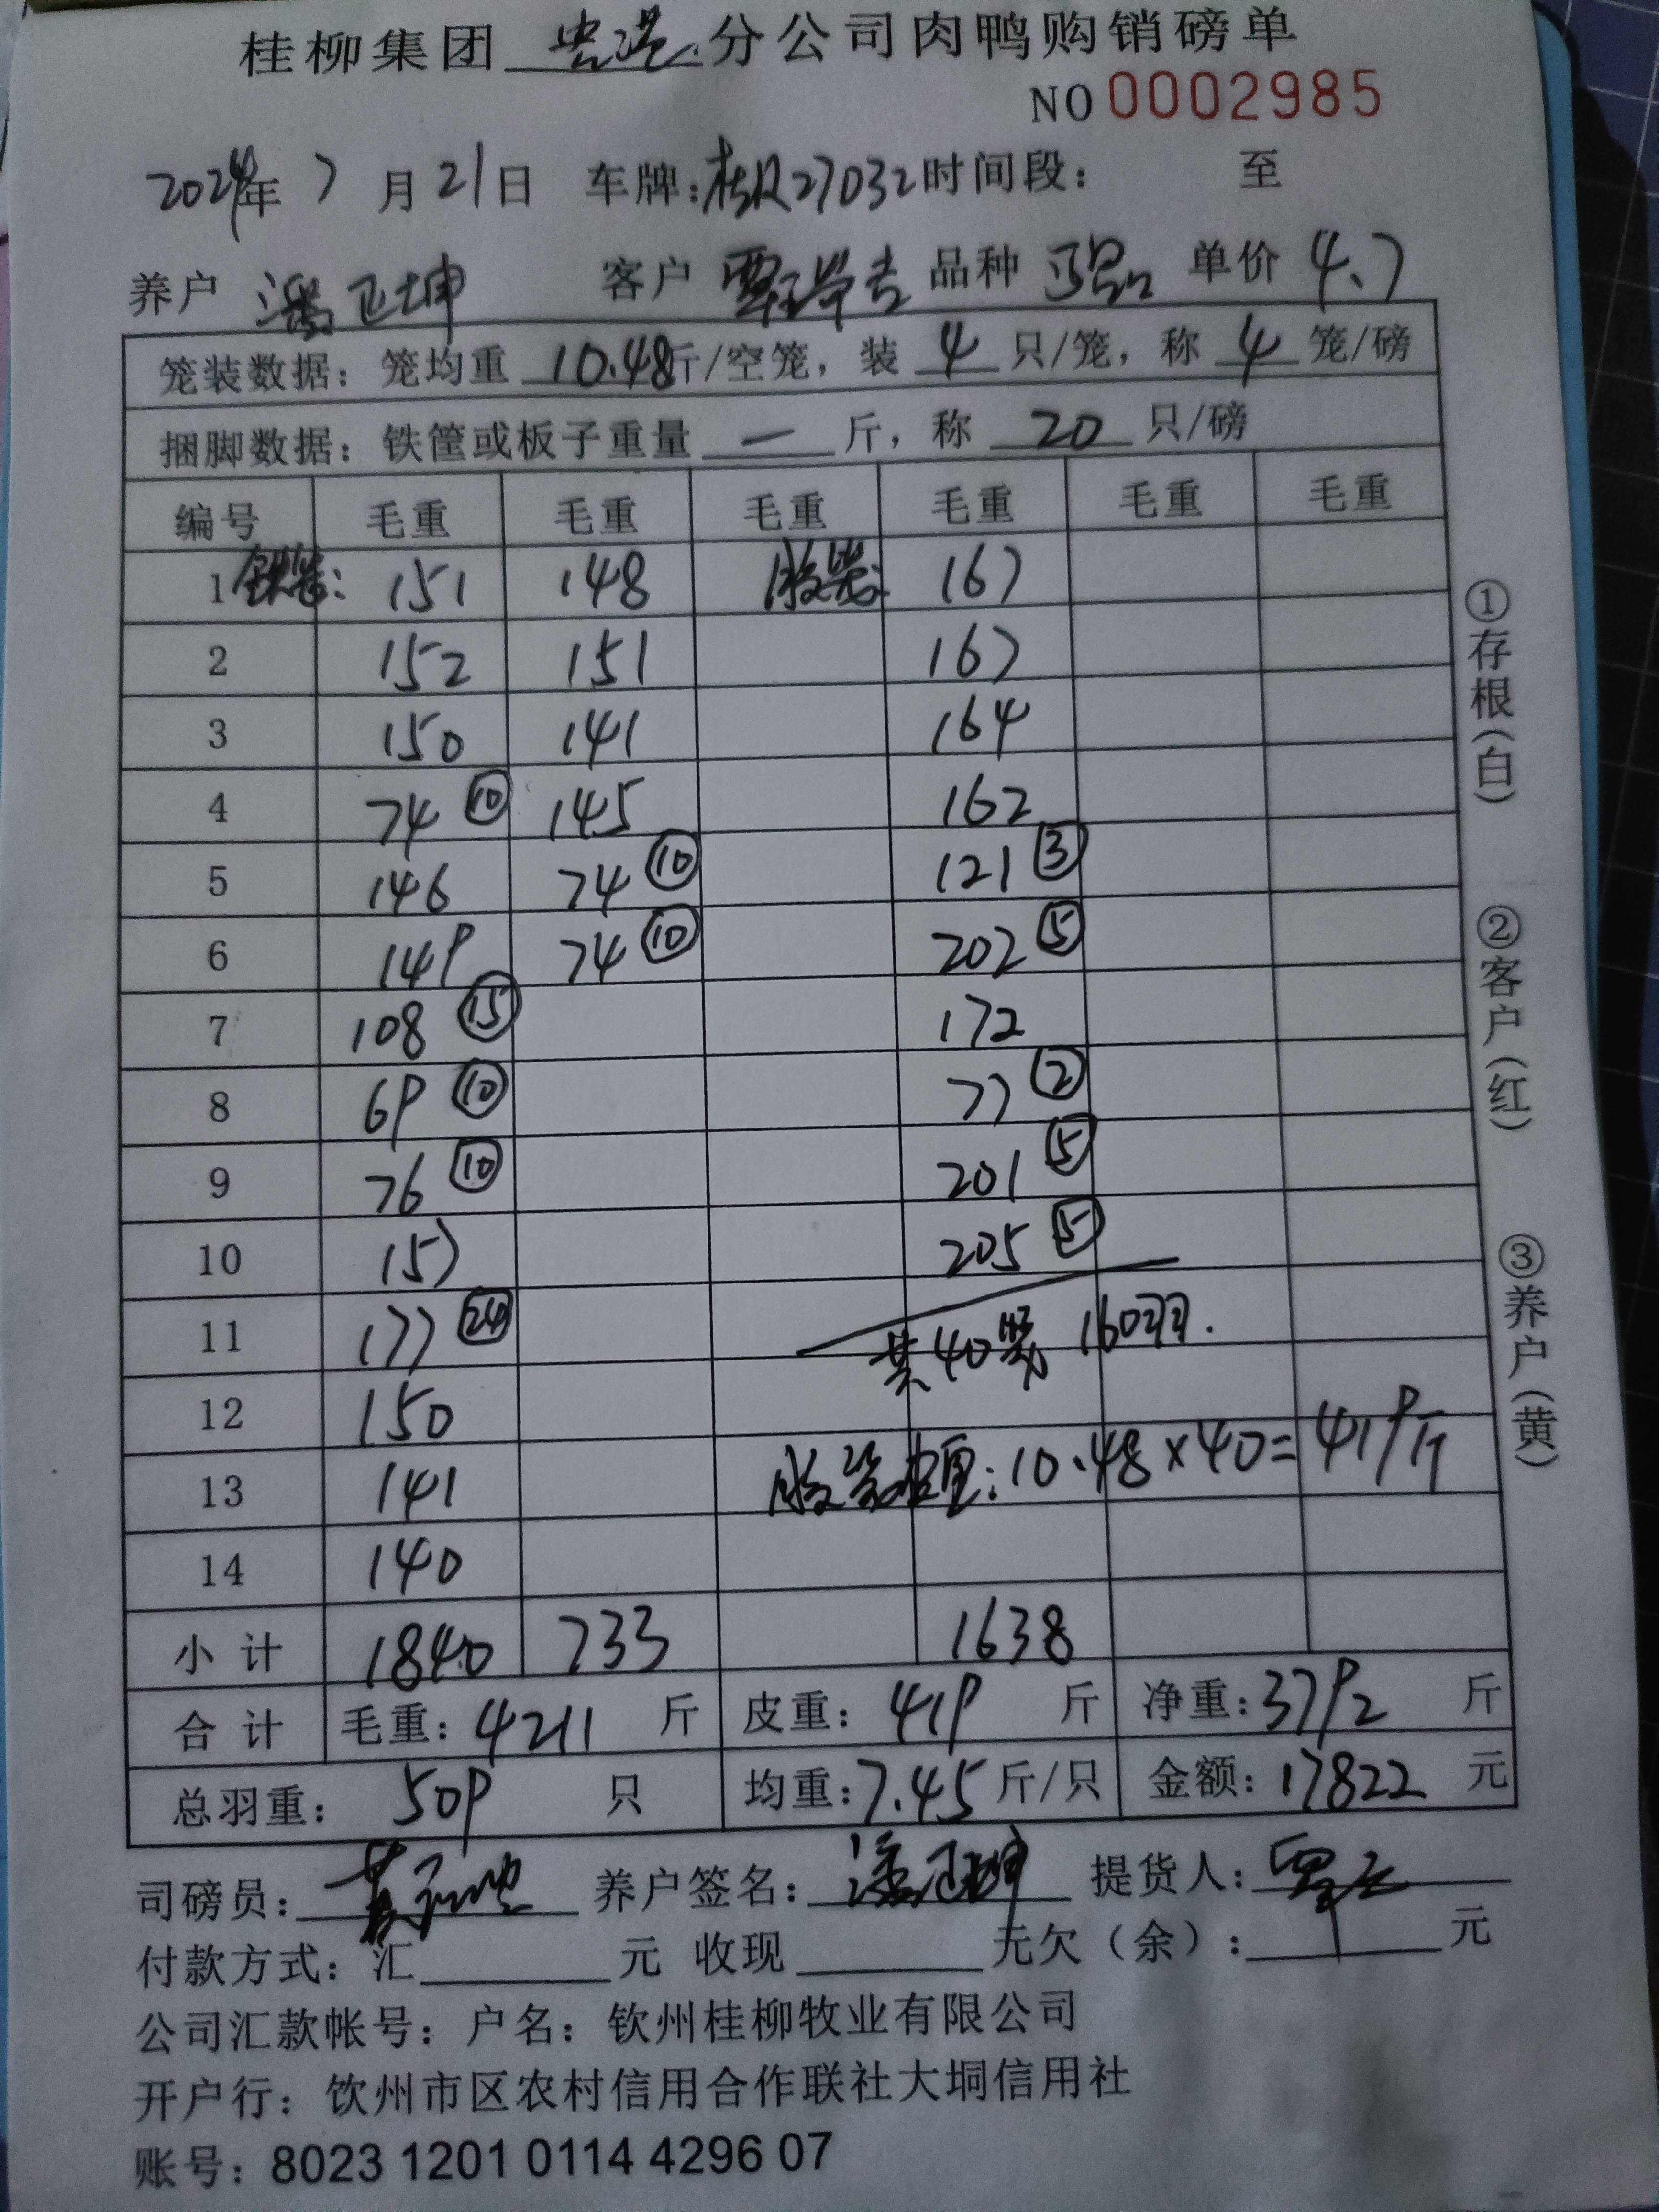 桂柳集团 贵港 分公司肉鸭购销磅单
NO 0002985
2024年 7 月 21 日 车牌:桂R27032 时间段: 至
养户 潘正坤 客户 覃 品种 单价 4.7
笼装数据: 笼均重 10.48 斤/空笼, 装 4 只/笼, 称 4 笼/磅
捆脚数据: 铁筐或板子重量 一 斤, 称 20 只/磅
编号 毛重 毛重 毛重 毛重 毛重 毛重
1 铁笼: 151 148 胶笼: 167
2 152 151 167
3 150 141 164
4 74 ⑩ 145 162
5 146 74 ⑩ 121 ③
6 149 74 ⑩ 202 ⑤
7 108 ⑮ 172
8 69 ⑩ 77 ②
9 76 ⑩ 201 ⑤
10 157 205 ⑤
11 177 ㉔ 共40笼 160羽.
12 150
13 141 胶笼皮重: 10.48×40=419斤
14 140
小 计 1840 733 1638
合 计 毛重: 4211 斤 皮重: 419 斤 净重: 3792 斤
总羽重: 509 只 均重: 7.45 斤/只 金额: 17822 元
司磅员: 养户签名: 潘正坤 提货人: 覃
付款方式: 汇 元 收现 无欠(余): 元
公司汇款帐号: 户名: 钦州桂柳牧业有限公司
开户行: 饮州市区农村信用合作联社大垌信用社
账号: 8023 1201 0114 4296 07
①存根(白)
②客户(红)
③养户(黄)